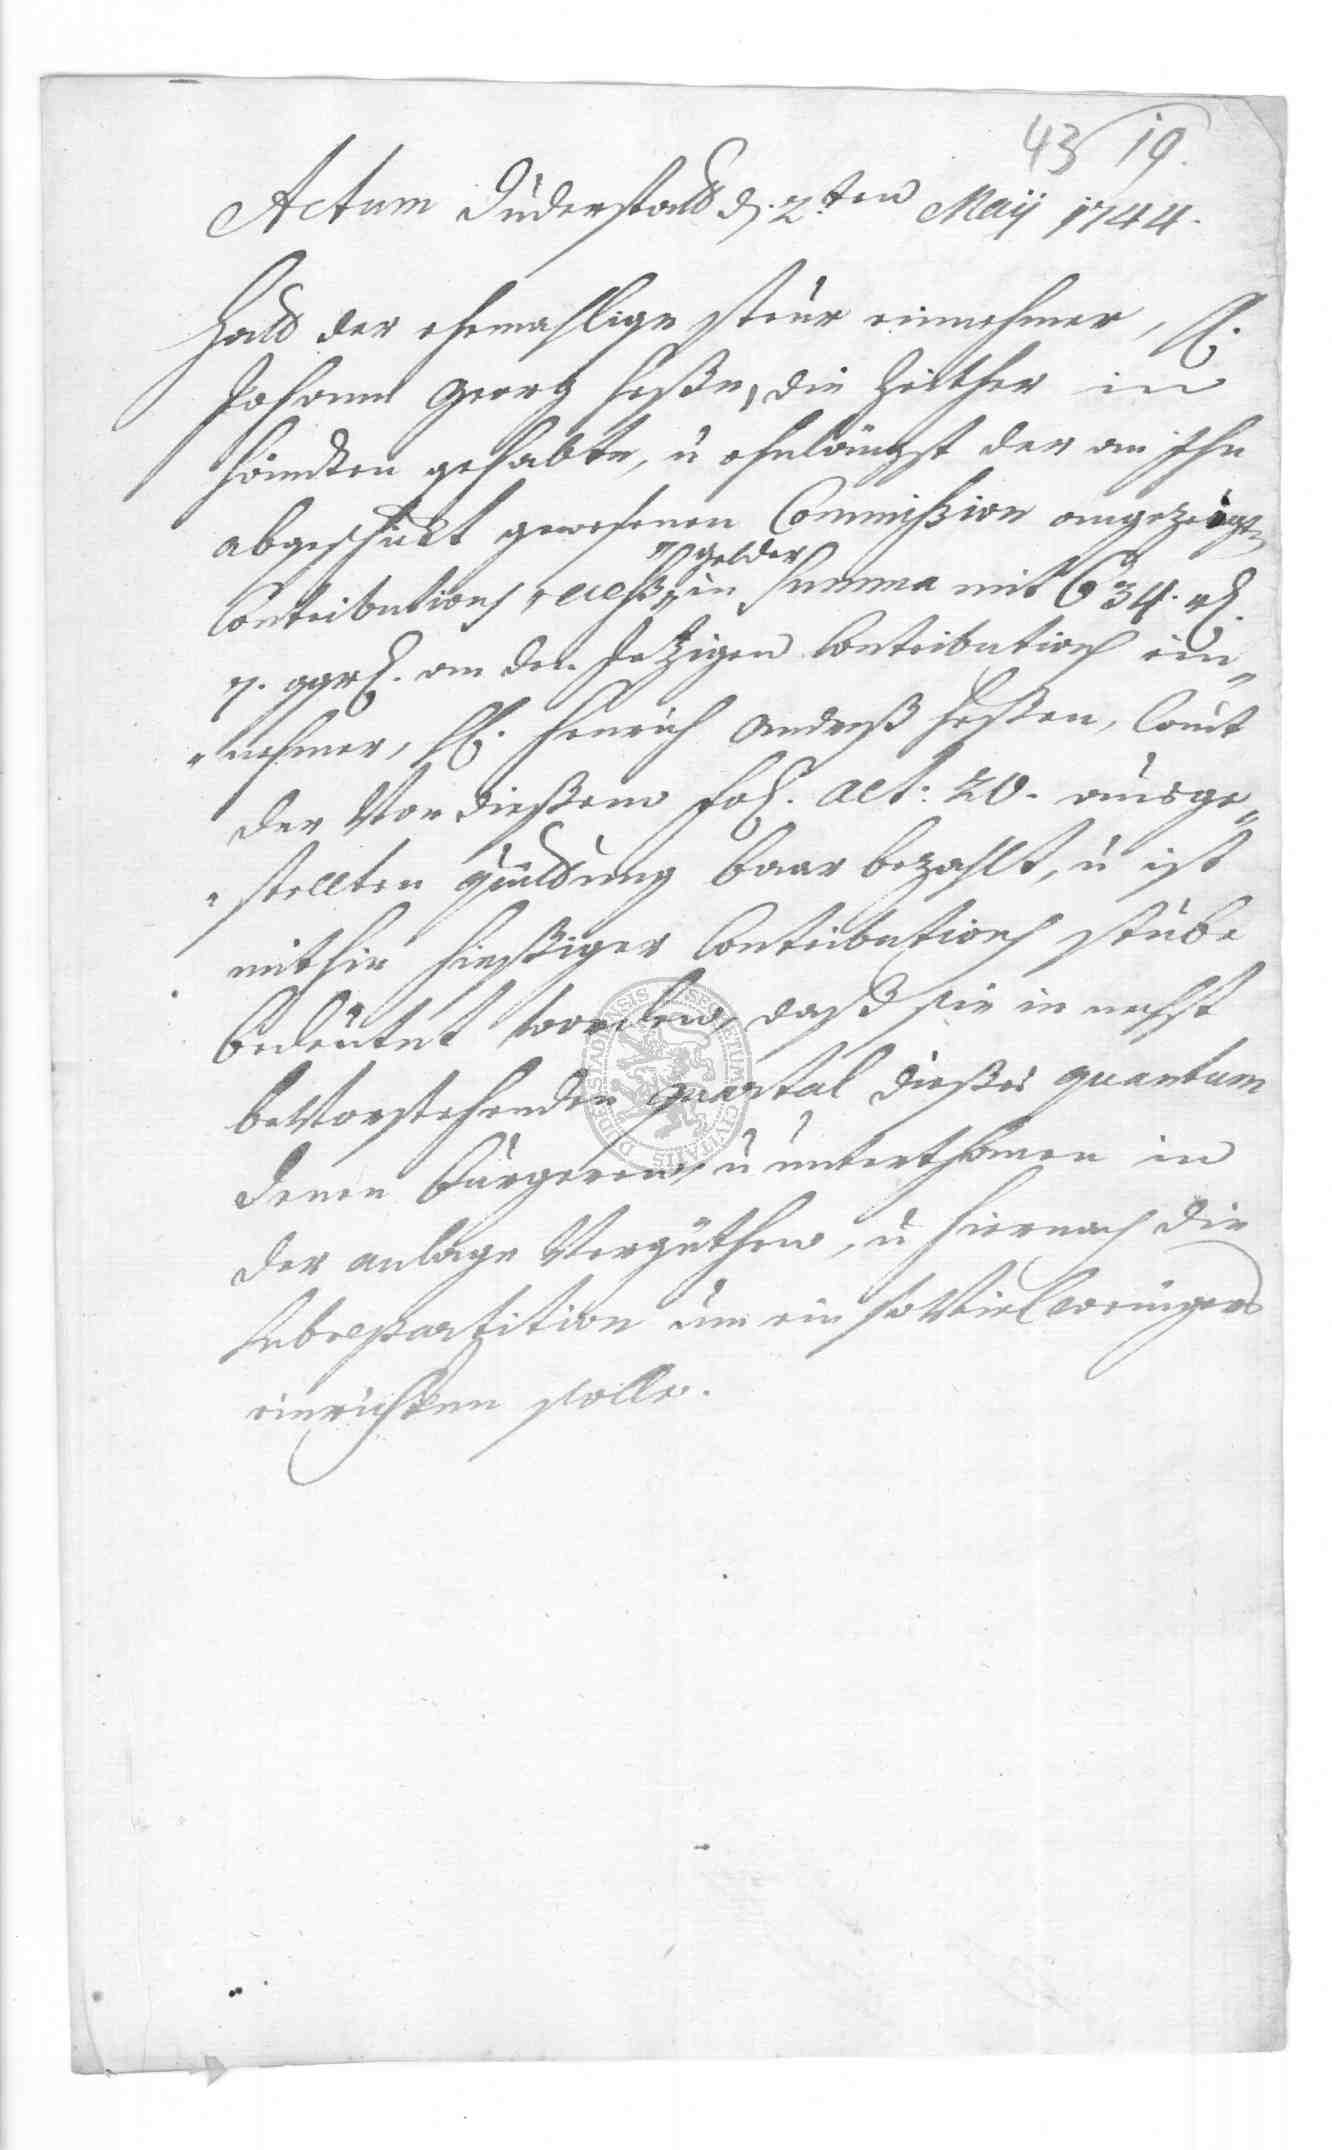 43 19.
Actum Duderstadt d. 2ten Maÿ 1744.
Hatt der ehemahlige steur einnehmer, H.
Johann Georg Heße, die Zeither in
händten gehabte, u ohnlängst der an Ihn
abgeschickt gewesenen Commission angezeigte
Contributions receß„ in summa mit 634. rth.
„gelder
7. ggrh. an den jetzigen Contributions ein„
„nehmer, H. Henrich Andreß Heßen, laut
der Von dießem fol. act: 20. ausge„
„stellten quittung baar bezahlt, u ist
mithin hießiger Contributions stube
bedeutet worden, daß sie in nechst
beVorstehenden quartal dießes quantum
denen bürgeren, u unterthanen in
der anlage Vergüthen, u hiernach die
Subrepartition um ein so Viel weniger
einrichten solle.
SECRETUM CIVITATIS DUDERSTADIENSIS